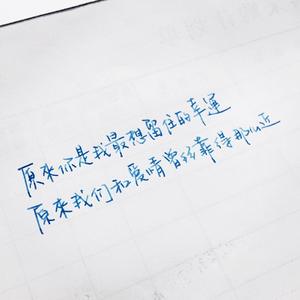 原來你是我最想留住的幸運
原來我们和爱情曾经靠得那么近